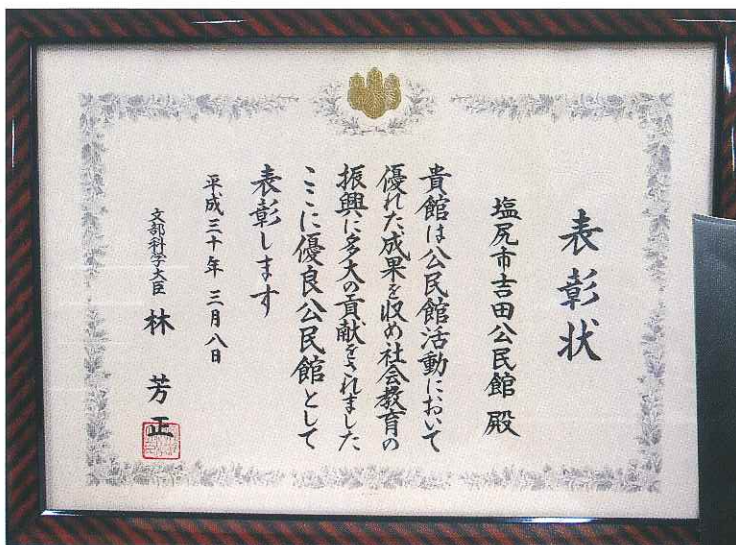 表彰状
塩尻市吉田公民館 殿
貴館は公民館活動において
優れた成果を収め社会教育の
振興に多大の貢献をされました
ここに優良公民館として
表彰します
平成三十年 三月八日
文部科学大臣 林 芳正